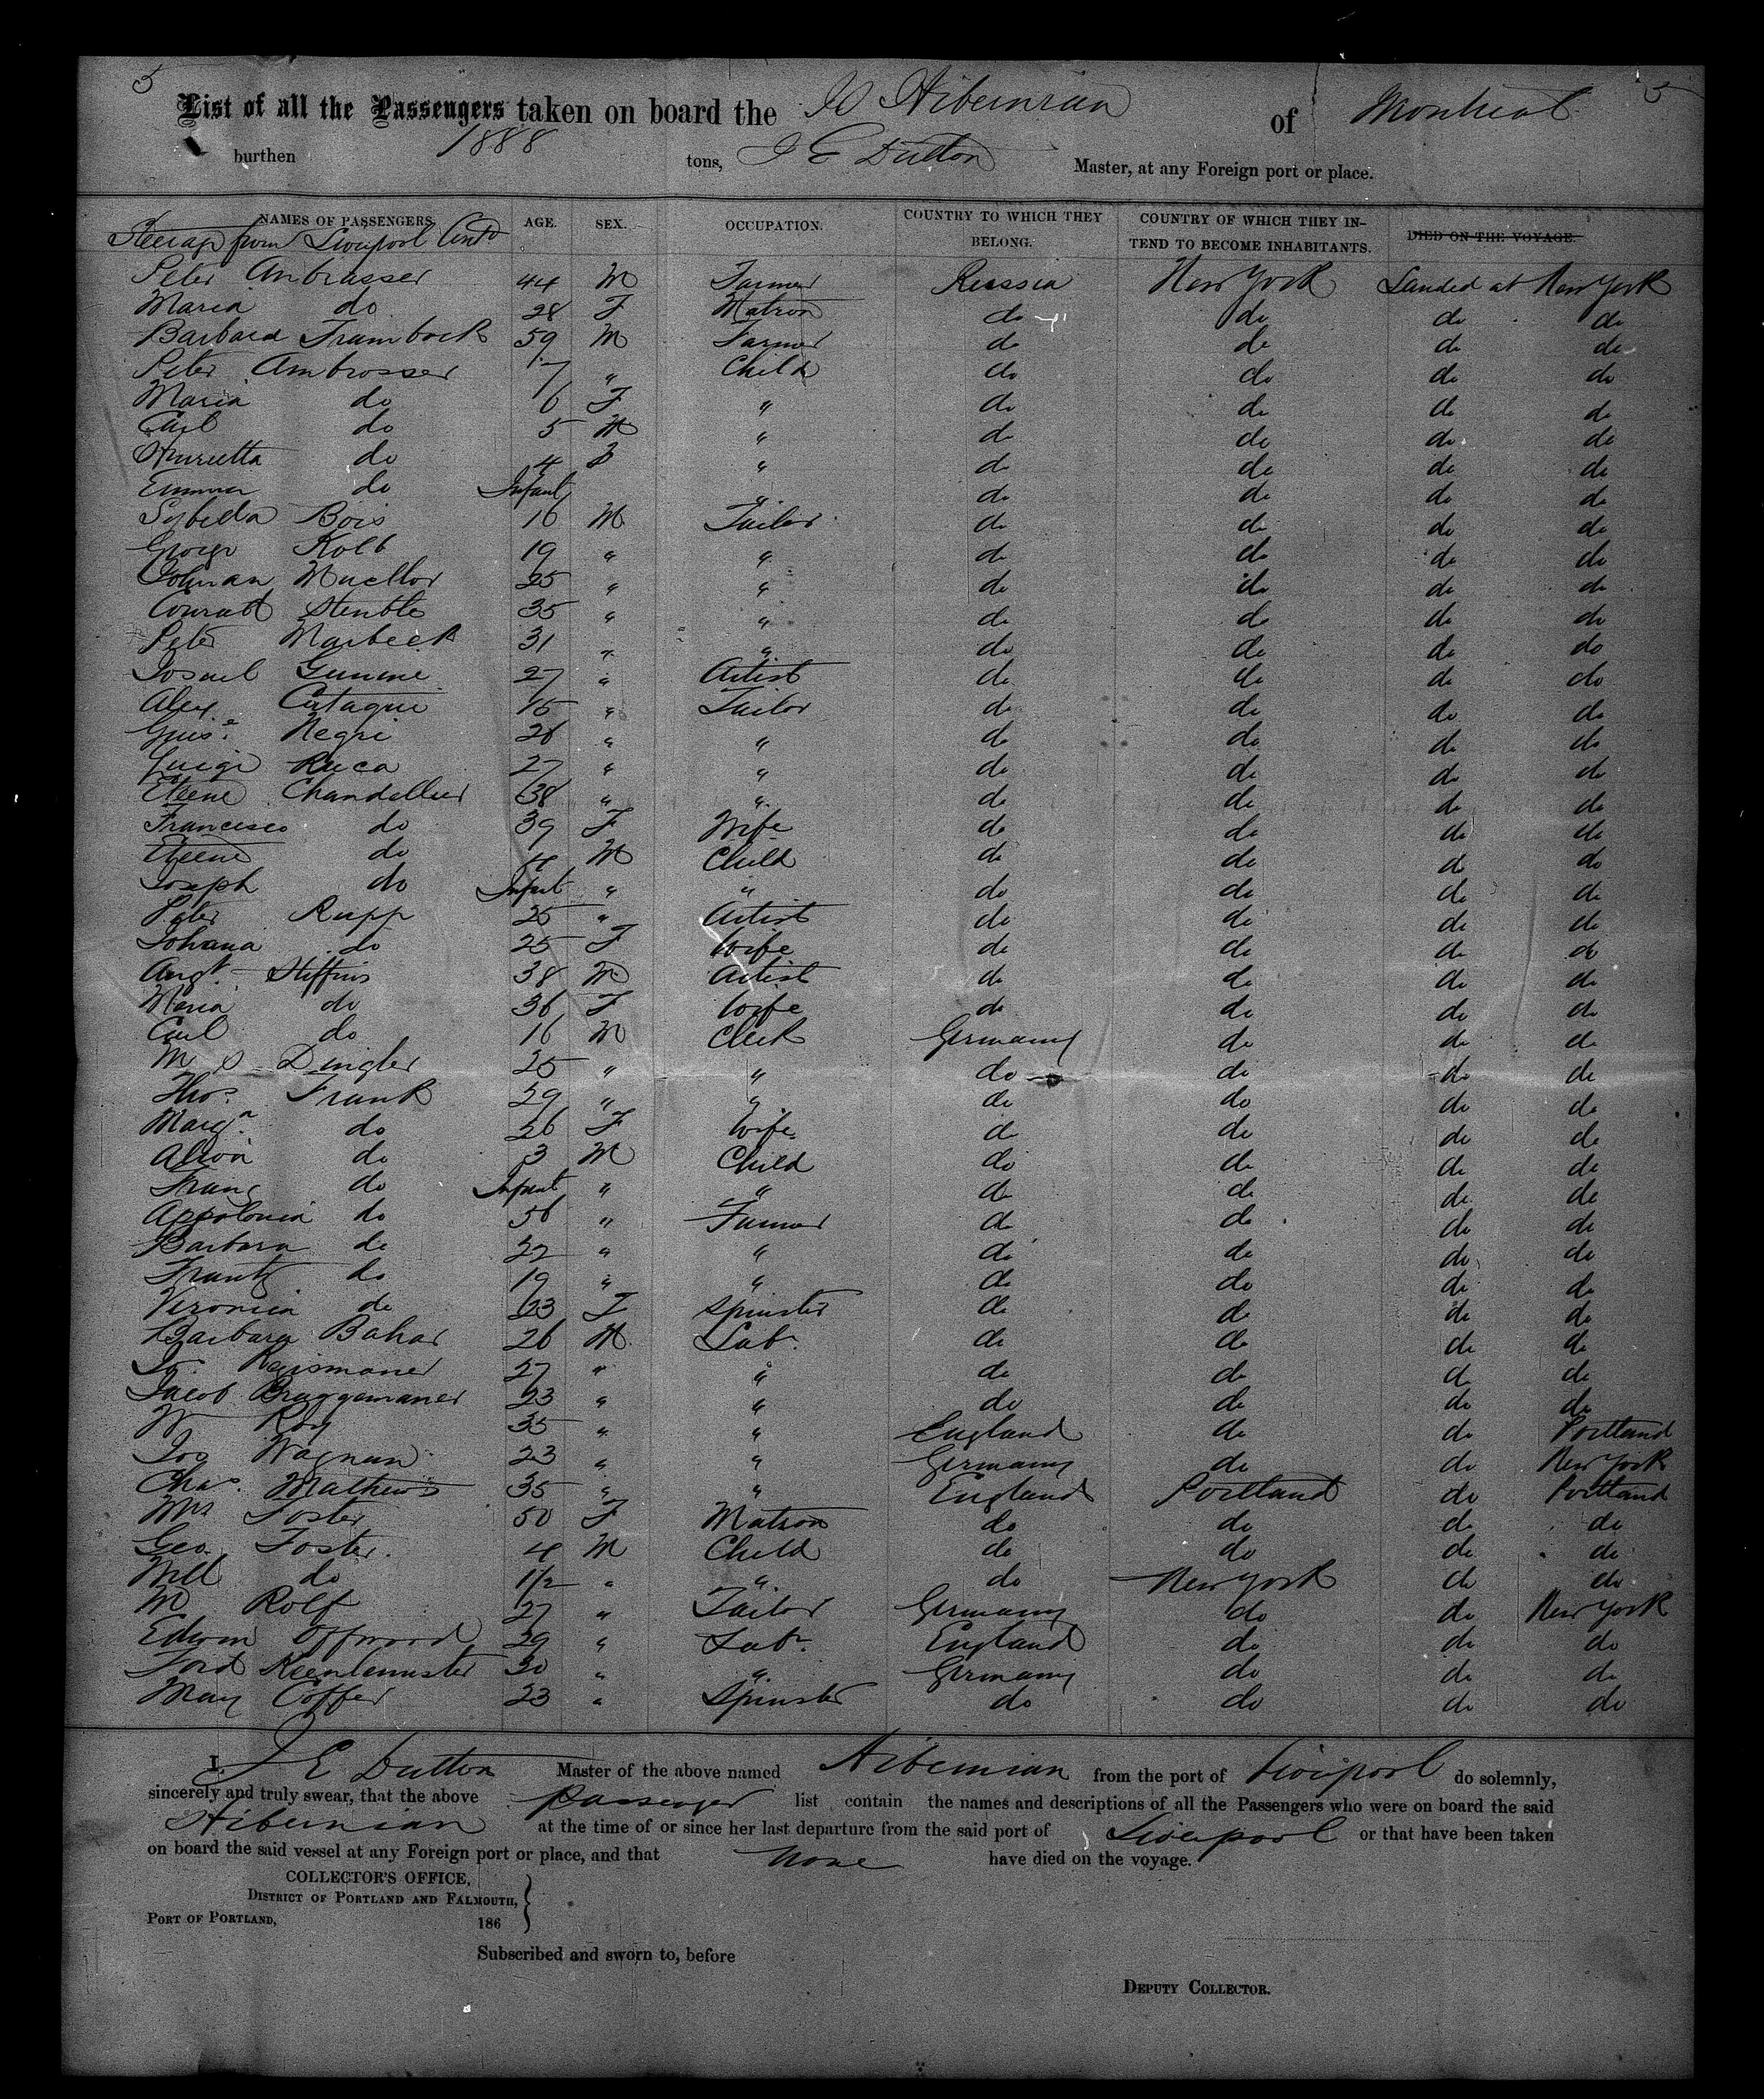 5 5
List of all the Passengers taken on board the SS Hibernian of Montreal
burthen 1888 tons, J E Dutton Master, at any Foreign port or place.
NAMES OF PASSENGERS. AGE. SEX. OCCUPATION. COUNTRY TO WHICH THEY BELONG. COUNTRY OF WHICH THEY INTEND TO BECOME INHABITANTS. DIED ON THE VOYAGE.
Steerage from Liverpool Contd
Peter Ambrasser 44 M Farmer Russia New York Landed at New York
Maria do 28 F Matron do do do do
Barbara Trambock 59 M Farmer do do do do
Peter Ambrosser 7 " Child do do do do
Maria do 6 F " do do do do
Carl do 5 M " do do do do
Henrietta do 4 F " do do do do
Emma do Infant " do do do do
Sybella Bois 16 M Tailor do do do do
George Kolb 19 " " do do do do
Johnan Muellor 25 " " do do do do
Conratt Stenble 35 " " do do do do
Peter Marbeck 31 " " do do do do
27 " Artist do do do do
Alex Cataqui 15 " Tailor do do do do
Guise Negri 26 " " do do do do
Luigi Ruca 27 " " do do do do
Eteene Chandellier 38 " " do do do do
Francesco do 39 F Wife do do do do
Eteene do 4 M Child do do do do
Joseph do Infant " " do do do do
Peter Rupp 25 " Artist do do do do
Johana do 25 F Wife do do do do
Augt Stiffins 38 M Artist do do do do
Maria do 36 F Wife do do do do
Carl do 16 M Clerk Germany do do do
M S Dingler 25 " " do do do do
Thos. Frank 29 " " do do do do
Marga. do 26 F Wife do do do do
do 3 M Child do do do do
Franz do Infant " " do do do do
Appolonia do 56 " Farmer do do do do
Barbara do 22 " " do do do do
Frantz do 19 " " do do do do
Veronica do 23 F Spinster do do do do
Barbara Bahar 26 M Labr. do do do do
Jo. Reismaner 27 " " do do do do
Jacob Bruggemaner 23 " " do do do do
W Roy 35 " " England do do Portland
Jos Wagnan 23 " " Germany do do New York
Chas. Mathews 35 " " England Portland do Portland
Mrs Foster 50 F Matron do do do do
Geo. Foster. 4 M Child do do do do
Will do 1/2 " " do New York do do
M Rolf 27 " Tailor Germany do do New York
Edwin Offwood 29 " Labr. England do do do
Ford 30 " " Germany do do do
Mary Coffer 23 " Spinster do do do do
I, J E Dutton Master of the above named Hibernian from the port of Liverpool do solemnly,
sincerely and truly swear, that the above Passenger list contain the names and descriptions of all the Passengers who were on board the said
Hibernian at the time of or since her last departure from the said port of Liverpool or that have been taken
on board the said vessel at any Foreign port or place, and that None have died on the voyage.
COLLECTOR'S OFFICE,
DISTRICT OF PORTLAND AND FALMOUTH,
PORT OF PORTLAND, 186
Subscribed and sworn to, before
DEPUTY COLLECTOR.